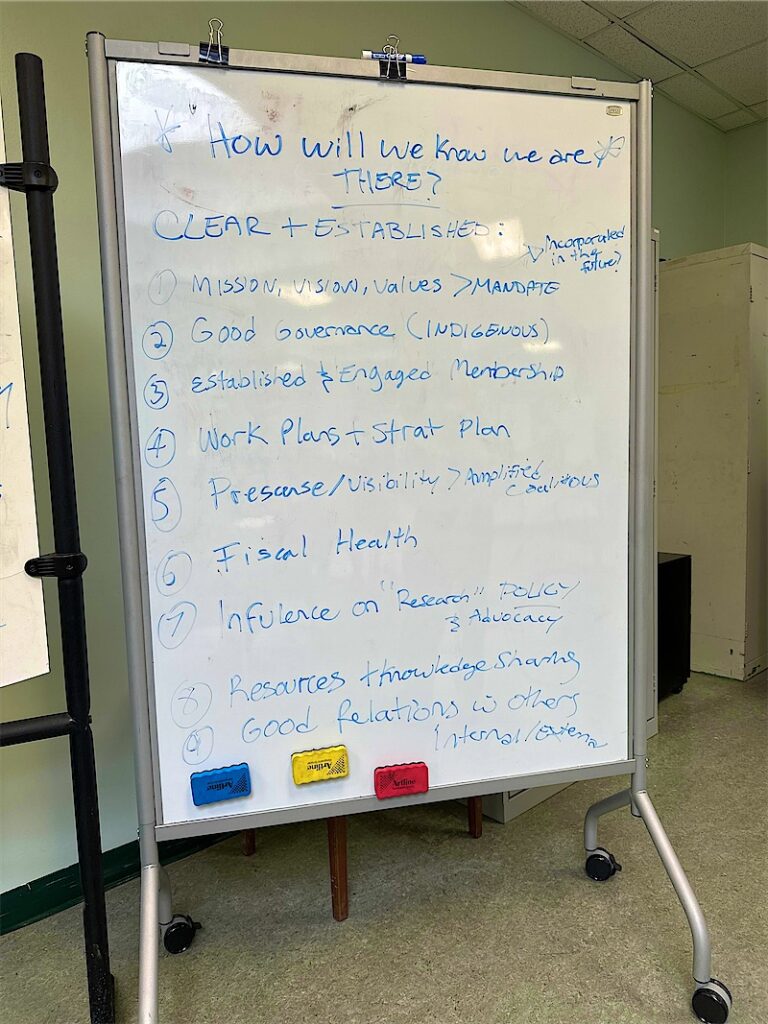 * "How will we know we are *
THERE?
CLEAR + ESTABLISHED:
Incorporated
in the
future?
① Mission, vision, values > MANDATE
② Good Governance (INDIGENOUS)
③ Established & Engaged Membership
④ Work Plans + Strat Plan
⑤ Prescense/Visibility > Amplified
Coalitions
⑥ Fiscal Health
⑦ Infulence on "Research" POLICY
& Advocacy
⑧ Resources + Knowledge Sharing
⑨ Good Relations w others
Internal/External
Artline
Artline
Artline